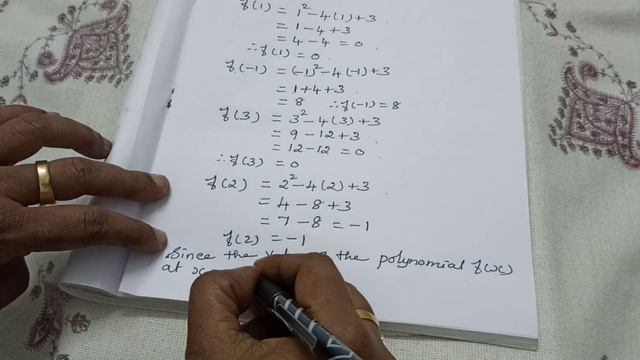 f(1) = 1² - 4(1) + 3
= 1 - 4 + 3
= 4 - 4 = 0
∴ f(1) = 0
f(-1) = (-1)² - 4(-1) + 3
= 1 + 4 + 3
= 8 ∴ f(-1) = 8
f(3) = 3² - 4(3) + 3
= 9 - 12 + 3
= 12 - 12 = 0
∴ f(3) = 0
f(2) = 2² - 4(2) + 3
= 4 - 8 + 3
= 7 - 8 = -1
f(2) = -1
Since the the polynomial f(x)
at x